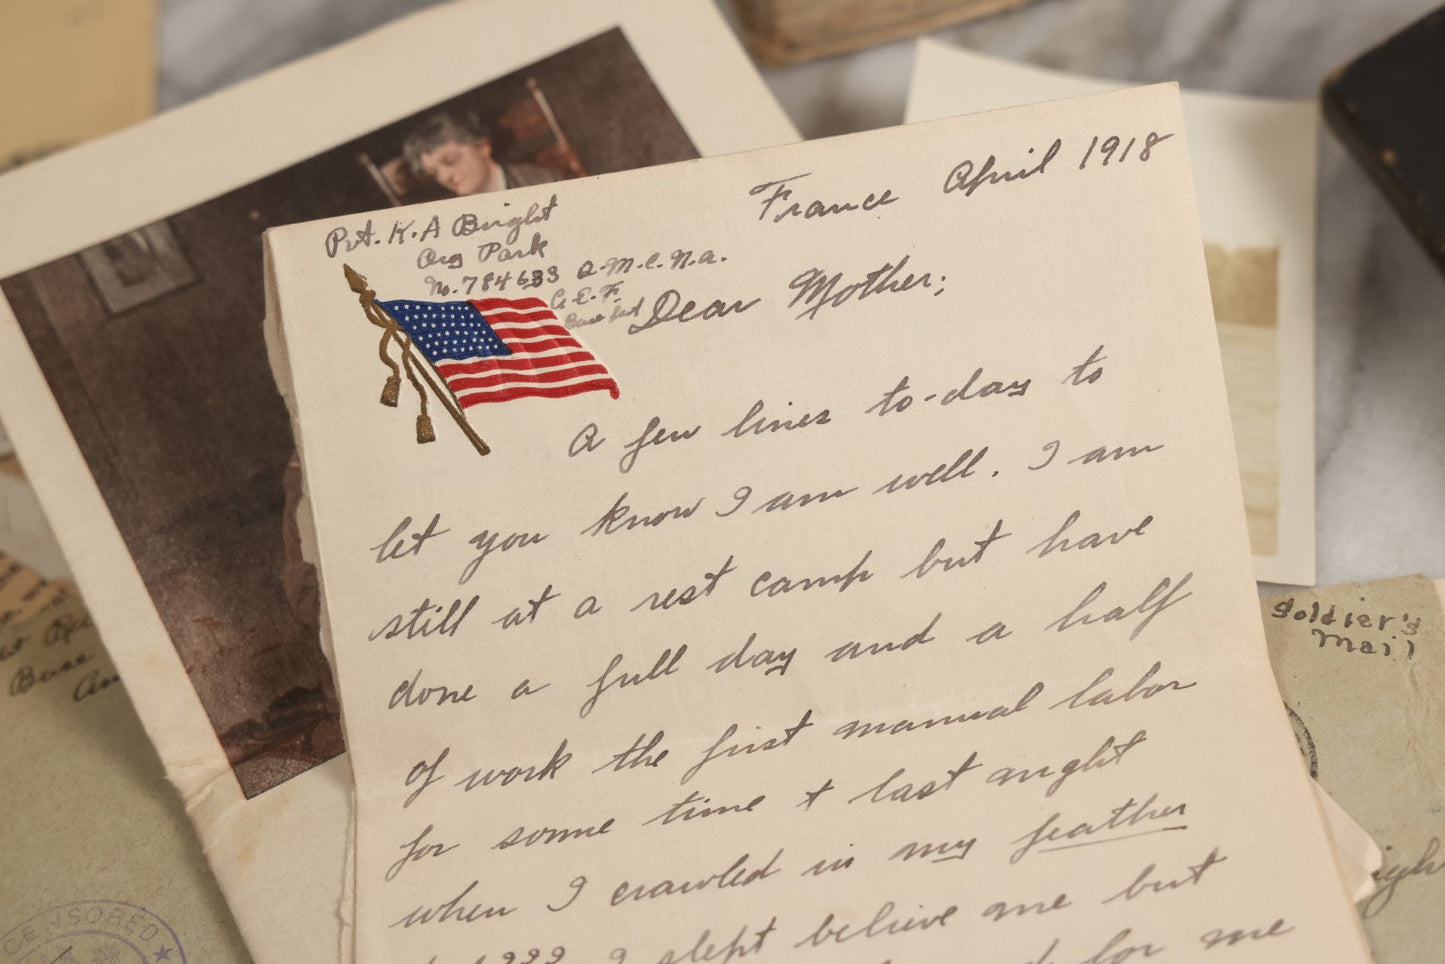 Pvt. K. A Bright
Org Park
No. 784633 A.M.C.N.A.
France April 1918
Dear Mother;
A few lines to-day to
let you know I am well. I am
still at a rest camp but have
done a full day and a half
of work the first manual labor
for some time + last night
when I crawled in my feather
??? I slept believe me but
for me
Soldier's
Mail
CENSORED